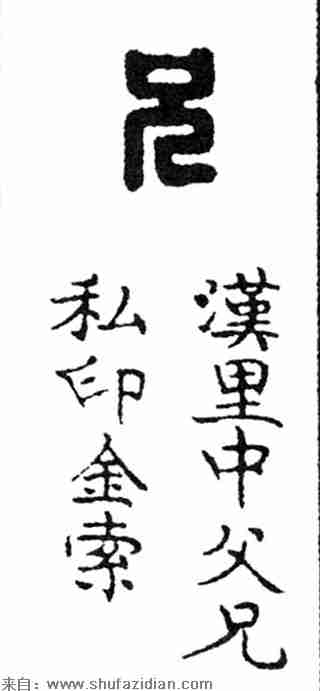 兄
漢里中父兄
私印金索
来自：www.shufazidian.com